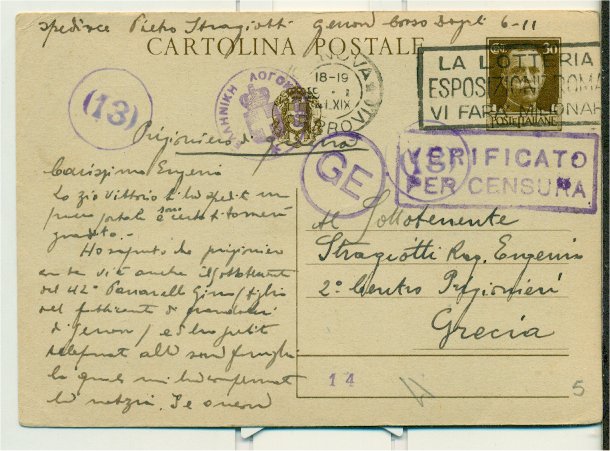 spedisce Pietro Stragiotti Genova Corso Dogali 6-11
CARTOLINA POSTALE
30
POSTE ITALIANE
18-19
XIX
LA LOTTERIA
ESPOSIZIONE ROMA
VI FARÀ MILIONARI
(13)
ΕΛΛΗΝΙΚΗ ΛΟΓΟΚ
Prigioniero di guerra
GE
VERIFICATO
PER CENSURA
Carissimo Eugenio
Lo zio Vittorio ti ha spedito un
pacco postale sono certo ti tornerà
gradito.-
Ho saputo che prigioniero
con te vi è anche il sottotenente
del 42° Gino (figlio
del fabbricante di
di Genova) e ho subito
telefonato alla sua famiglia
la quale mi ha confermato
la notizia. Se
Al Sottotenente
Stragiotti Rag. Eugenio
2° Centro Prigionieri
Grecia
14
5